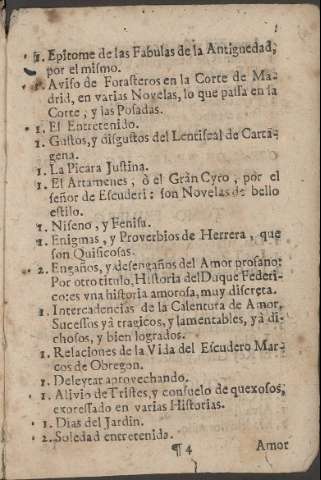 1. Epitome de las Fabulas de la Antiguedad,
por el mismo.
1. Aviso de Forasteros en la Corte de Ma-
drid, en varias Novelas, lo que passa en la
Corte, y las Posadas.
1. El Entretenido.
1. Gustos, y disgustos del Lentiscal de Carta-
gena.
1. La Picara Justina.
1. El Artamenes, ò el Gràn Cyro, por el
señor de Escuderi: son Novelas de bello
estilo.
1. Niseno, y Fenisa.
1. Enigmas, y Proverbios de Herrera, que
son Quisicosas.
2. Engaños, y desengaños del Amor profano:
Por otro titulo, Historia del Duque Federi-
co: es vna historia amorosa, muy discreta.
1. Intercadencias de la Calentura de Amor,
Sucessos yà tragicos, y lamentables, yà di-
chosos, y bien logrados.
1. Relaciones de la Vida del Escudero Mar-
cos de Obregon.
1. Deleytar aprovechando.
1. Alivio de Tristes, y consuelo de quexosos,
expressado en varias Historias.
1. Dias del Jardin.
2. Soledad entretenida.
¶ 4 Amor